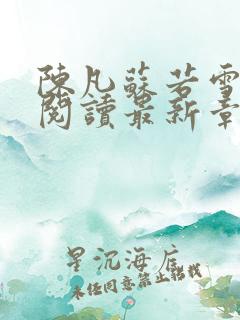 陳凡蘇若雪
閱讀最新章
星沉海底
未经同意禁止转载